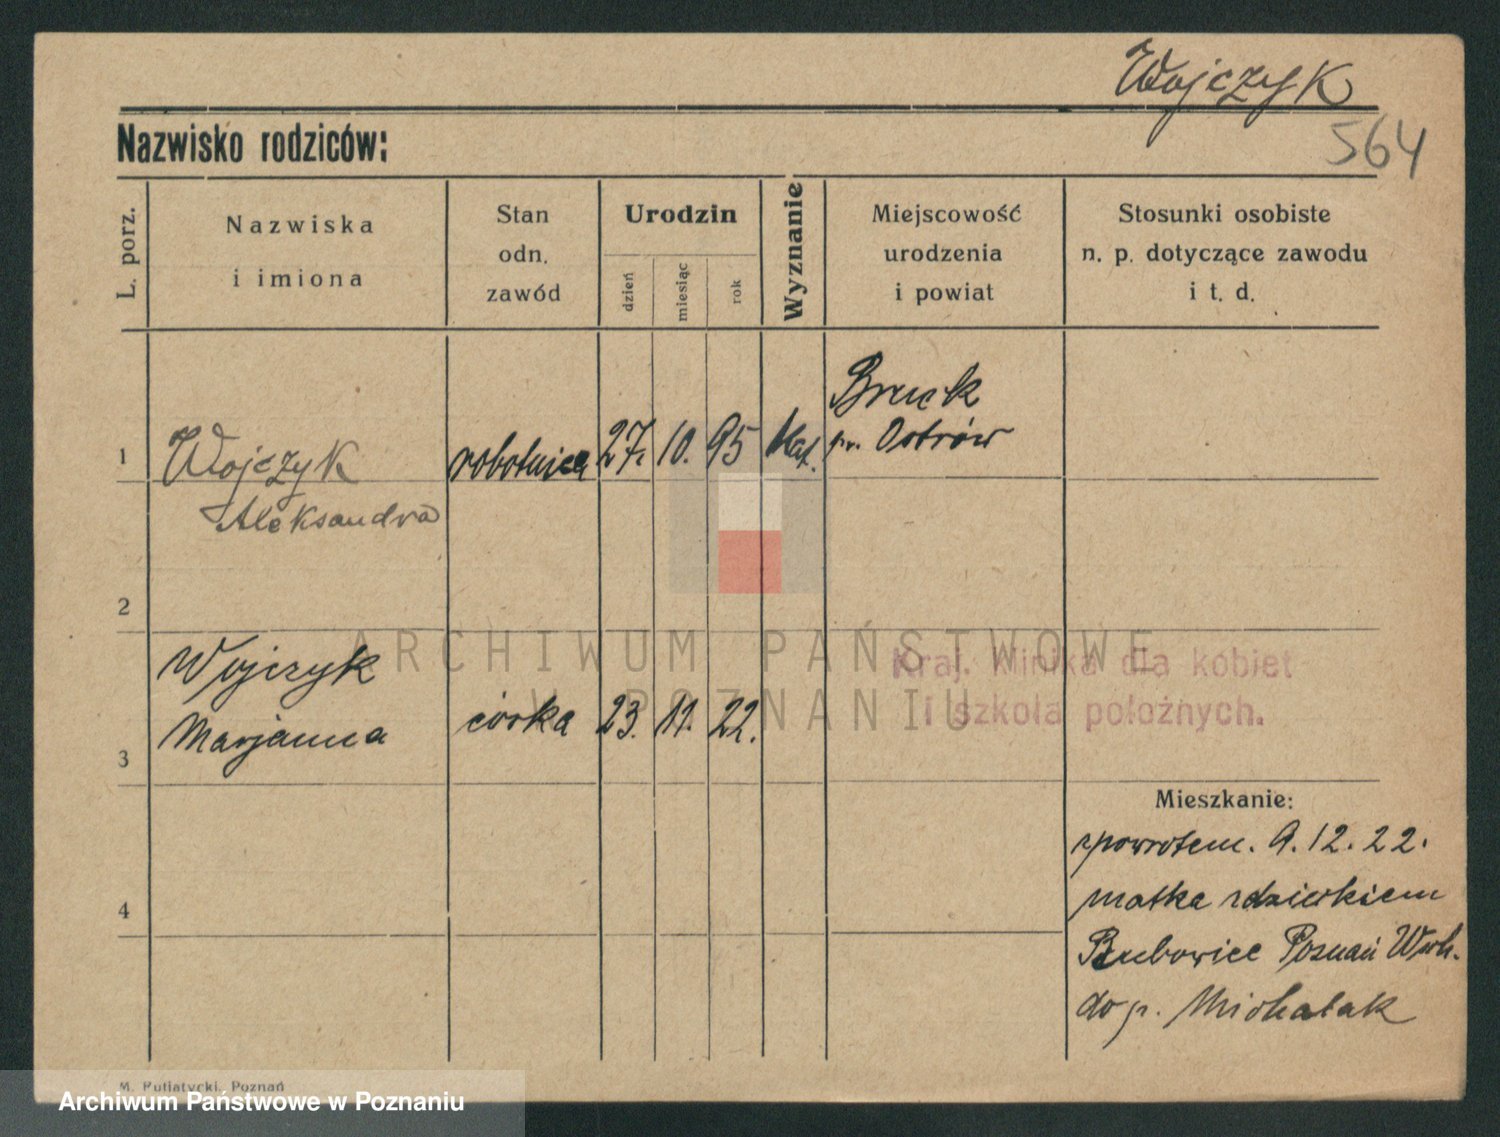 Wojczyk
Nazwisko rodziców:
564
L. porz.
Nazwiska
i imiona
Stan
odn.
zawód
Urodzin
dzień
miesiąc
rok
Wyznanie
Miejscowość
urodzenia
i powiat
Stosunki osobiste
n. p. dotyczące zawodu
i t. d.
1
Wojczyk
Aleksandra
robotnica
27. 10. 95
kat.
Bruck
pr. Ostrów
2
Wojczyk
Marjanna
córka
23. 11. 22.
Kraj. klinika dla kobiet
i szkoła położnych.
3
Mieszkanie:
zpowrotem. 9. 12. 22.
matka zdzieckiem
Poznań
do p. Michalak
4
M. Putiatycki, Poznań
ARCHIWUM PAŃSTWOWE
W POZNANIU
Archiwum Państwowe w Poznaniu